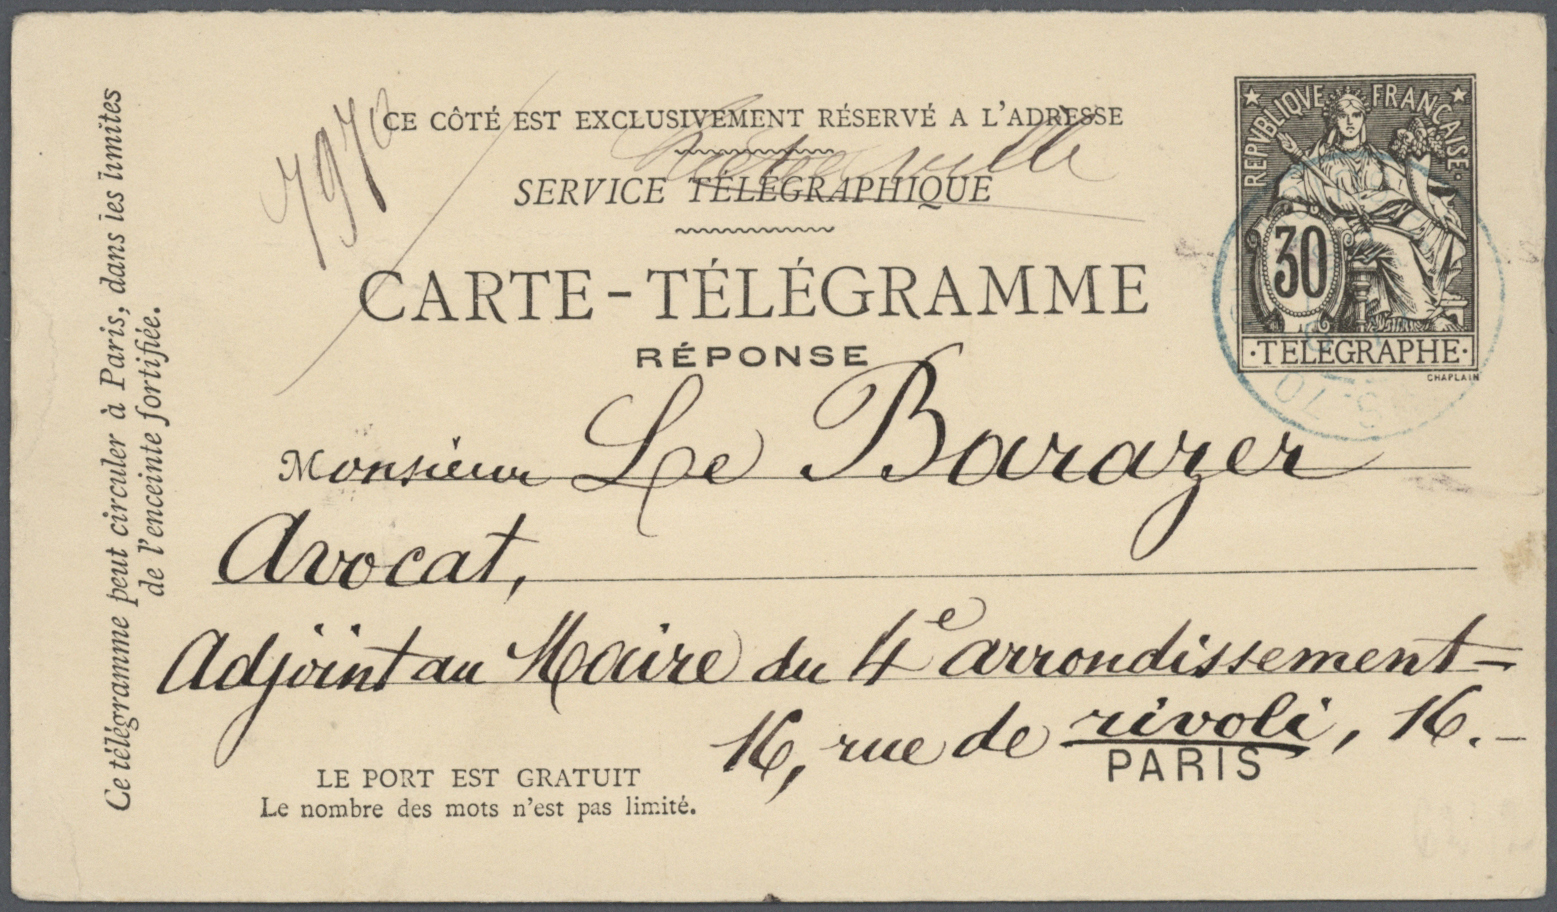 CE CÔTÉ EST EXCLUSIVEMENT RÉSERVÉ A L'ADRESSE
SERVICE TÉLÉGRAPHIQUE
CARTE-TÉLÉGRAMME
RÉPONSE
RÉPUBLIQUE FRANÇAISE
30
·TELEGRAPHE·
CHAPLAIN
Monsieur Le Barazer
Avocat,
Adjoint au Maire du 4e arrondissement
16, rue de rivoli, 16.
PARIS
LE PORT EST GRATUIT
Le nombre des mots n'est pas limité.
Ce télégramme peut circuler à Paris, dans les limites
de l'enceinte fortifiée.